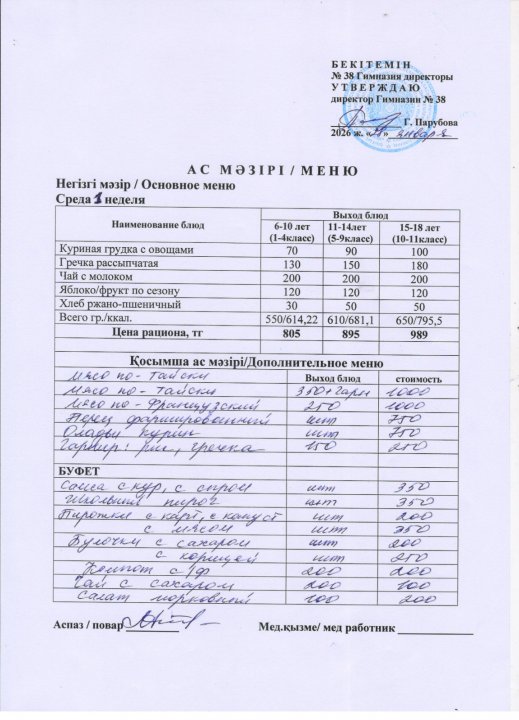 БЕКІТЕМІН
№ 38 Гимназия директоры
УТВЕРЖДАЮ
директор Гимназии № 38
Г. Парубова
2026 ж. «21» января
АС МӘЗІРІ / МЕНЮ
Негізгі мәзір / Основное меню
Среда 1 неделя
Наименование блюд Выход блюд
6-10 лет (1-4класс) 11-14лет (5-9класс) 15-18 лет (10-11класс)
Куриная грудка с овощами 70 90 100
Гречка рассыпчатая 130 150 180
Чай с молоком 200 200 200
Яблоко/фрукт по сезону 120 120 120
Хлеб ржано-пшеничный 30 50 50
Всего гр./ккал. 550/614,22 610/681,1 650/795,5
Цена рациона, тг 805 895 989
Қосымша ас мәзірі/Дополнительное меню
мясо по-тайски Выход блюд стоимость
мясо по-тайски 350+гарн 1000
мясо по-французский 250 1000
Перец фаршированный шт 750
Оладьи курин шт 750
Гарнир: рис, гречка 150 250
БУФЕТ
Самса с кур, с сыром шт 350
Школьный пирог шт 350
Пирожки с карт, с капуст шт 200
с мясом шт 350
Булочки с сахаром шт 200
с корицей шт 250
Компот с/ф 200 200
Чай с сахаром 200 100
Салат морковный 100 200
Аспаз / повар Мед.қызме/ мед работник